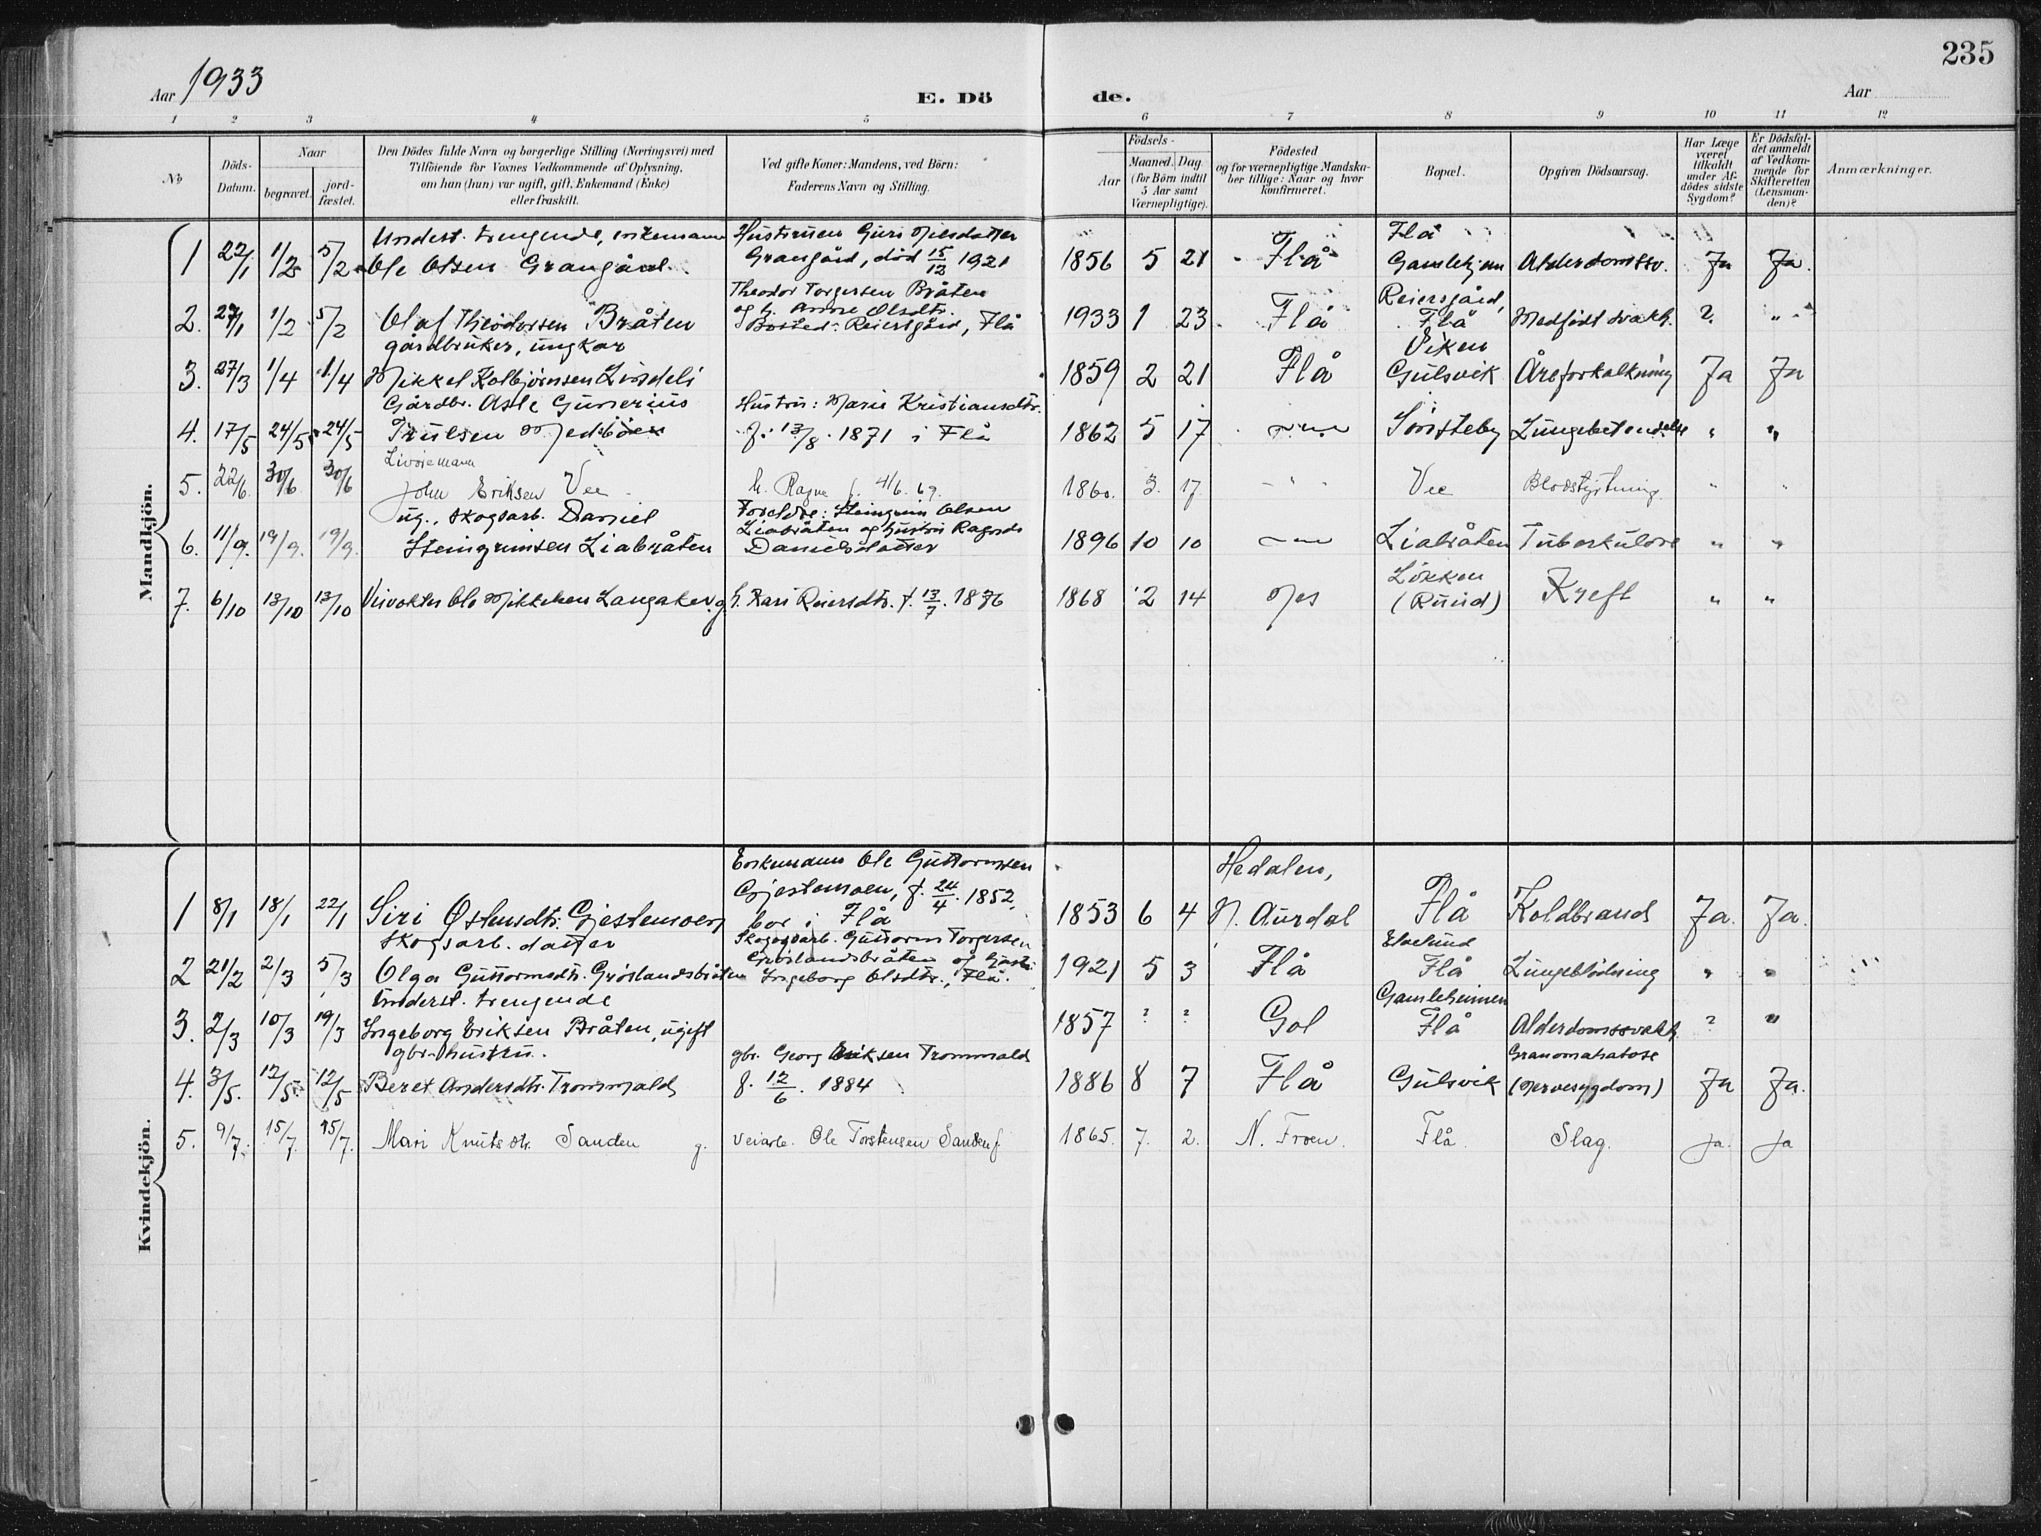 235
Aar 1933
E. Dö
de.
Aar
1 2 3 4 5 6 7 8 9 10 11 12
No
Döds-Datum.
Naar
begravet.
jord-fæstet.
Den Dödes fulde Navn og borgerlige Stilling (Næringsvei) med
Tilföiende for Voxnes Vedkommende af Oplysning,
om han (hun) var ugift, gift, Enkemand (Enke)
eller fraskilt.
Ved gifte Koner: Mandens, ved Börn:
Faderens Navn og Stilling.
Födsels-
Aar
Maaned. Dag
(for Börn indtil
5 Aar samt
Værnepligtige).
Födested
og for værnepligtige Mandska-
ber tillige: Naar og hvor
konfirmeret.
Bopæl.
Opgiven Dödsaarsag.
Har Læge
været
tilkaldt
under Af-
dödes sidste
Sygdom?
Er Dödsfal-
det anmeldt
af Vedkom-
mende for
Skifteretten
(Lensman-
den)?
Anmærkninger.
Mandkjön.
Underst. trengende, enkemann Hustruen Guri Nilsdatter Flå
1 22/1 1/2 5/2 Ole Olsen Grangård Grangård, död 15/12 1921 1856 5 21 Flå Gamlehjem Alderdomssv. Ja Ja.
Theodor Torgersen Bråten Reiersgård,
2. 27/1 1/2 5/2 Olaf Theodorsen Bråten og h. Anne Olsdtr. 1933 1 23 Flå Flå Medfödt svakh. ? "
Bosted: Reiersgård, Flå
gårdbruker, ungkar Viken
3. 27/3 1/4 1/4 Mikkel Kolbjörnsen Livsdeli 1859 2 21 Flå Gulsvik Åreforkalkning Ja Ja
Gårdbr. Asle Gunerius Hustru: Marie Kristiansdtr.
4. 17/5 24/5 24/5 Trulsen Medböen f. 13/8 1871 i Flå 1862 5 17 Sörsteby Lungebetendelse " "
Livöremann
5. 22/6 30/6 30/6 John Eriksen Vee h. Ragne f. 4/6. 69. 1860. 3. 17 " Vee Blodstyrtning " "
ug., skogsarb. Daniel Foreldre: Steingrim Olsen
6. 11/9. 19/9. 19/9. Steingrimsen Liabråten Liabråten og hustru Ragndi 1896 10 10 Liabråten Tuberkulose " "
Danielsdatter
Lökken
7. 6/10 13/10 13/10 Veivokter Ole Mikkelsen Langaker g. h. Kari Reiersdtr. f. 13/7. 1876 1868 2 14 Nes (Ruud) Kreft " "
Kvindekjön.
Enkemann Ole Guttormsen Hedalen,
Gjestemoen, f. 24/4. 1852,
1 8/1 18/1 22/1 Siri Östensdtr. Gjestemoen bor i Flå 1853 6 4 N. Aurdal Flå Koldbrand Ja. Ja.
skogsarb. datter Skogsarb. Guttorm Torgersen
2 21/2 2/3 5/3 Olga Guttormsdtr. Gröslandsbråten Gröslandsbråten og hustru 1921 5 3 Flå Flå Lungeblödning " "
Ingeborg Olsdtr., Flå.
Underst. trengende Gamleheimen
3. 2/3 10/3 19/3 Ingeborg Eriksen Bråten, ugift 1857 ? ? Gol Flå Alderdomssvakh. ? "
gbr. hustru. gbr. Georg Eriksen Trommald Granomatatose
4. 3/5. 12/5 12/5 Beret Andersdtr. Trommald f. 12/6. 1884 1886 8 7 Flå Gulsvik (Nervesygdom) Ja Ja.
5. 9/7. 15/7. 15/7. Mari Knutsdtr. Sanden g. veiarb. Ole Torstensen Sanden f. 1865. 7. 2. N. Froen. Flå. Slag. Ja. Ja